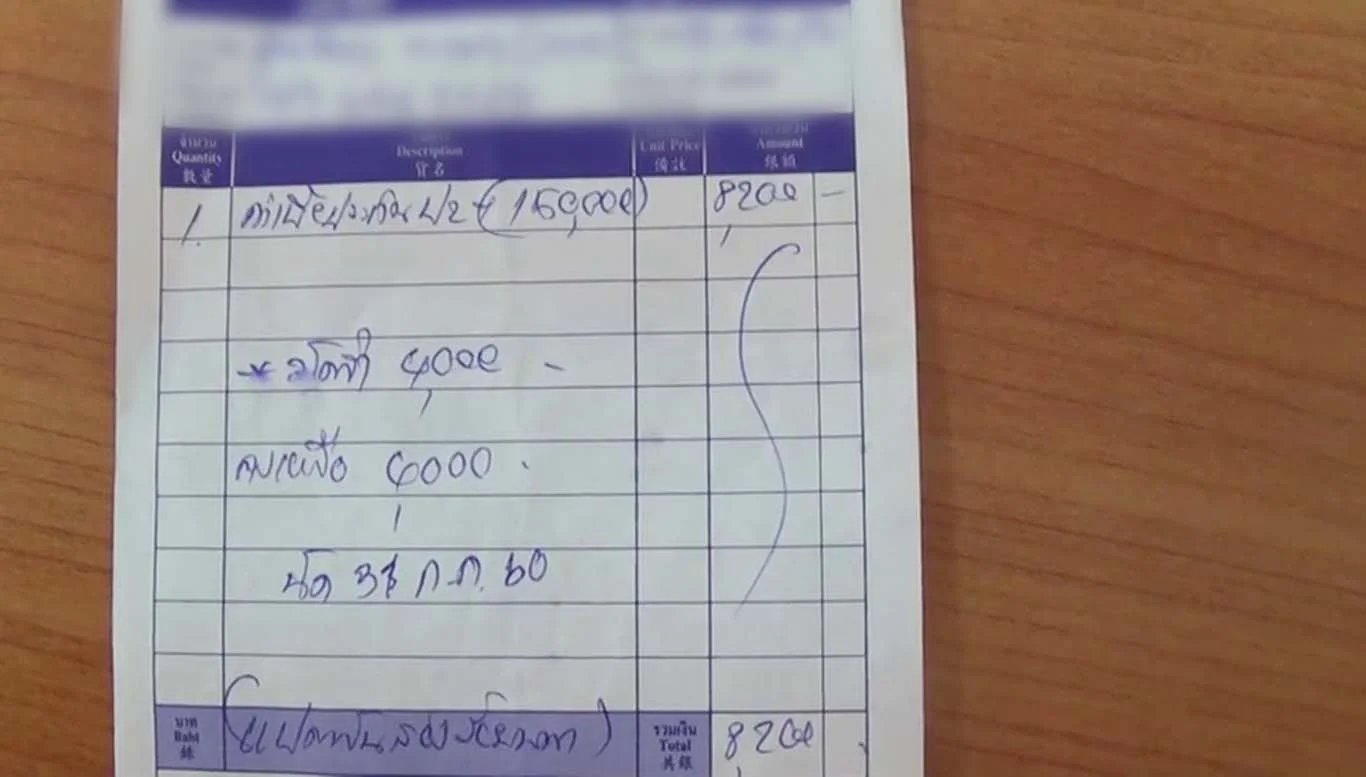 จำนวน Quantity 數量 Description 貨名 Unit Price 備註 จำนวนเงิน Amount 銀額
1. ค่าเบี้ยประกัน ป2+ (150,000) 8,200 -
* 4,000 -
คงเหลือ 4,000
นัด 31 ก.ค. 60
บาท Baht 銖 (แปดพันสองร้อยบาท) รวมเงิน Total 共銀 8,200